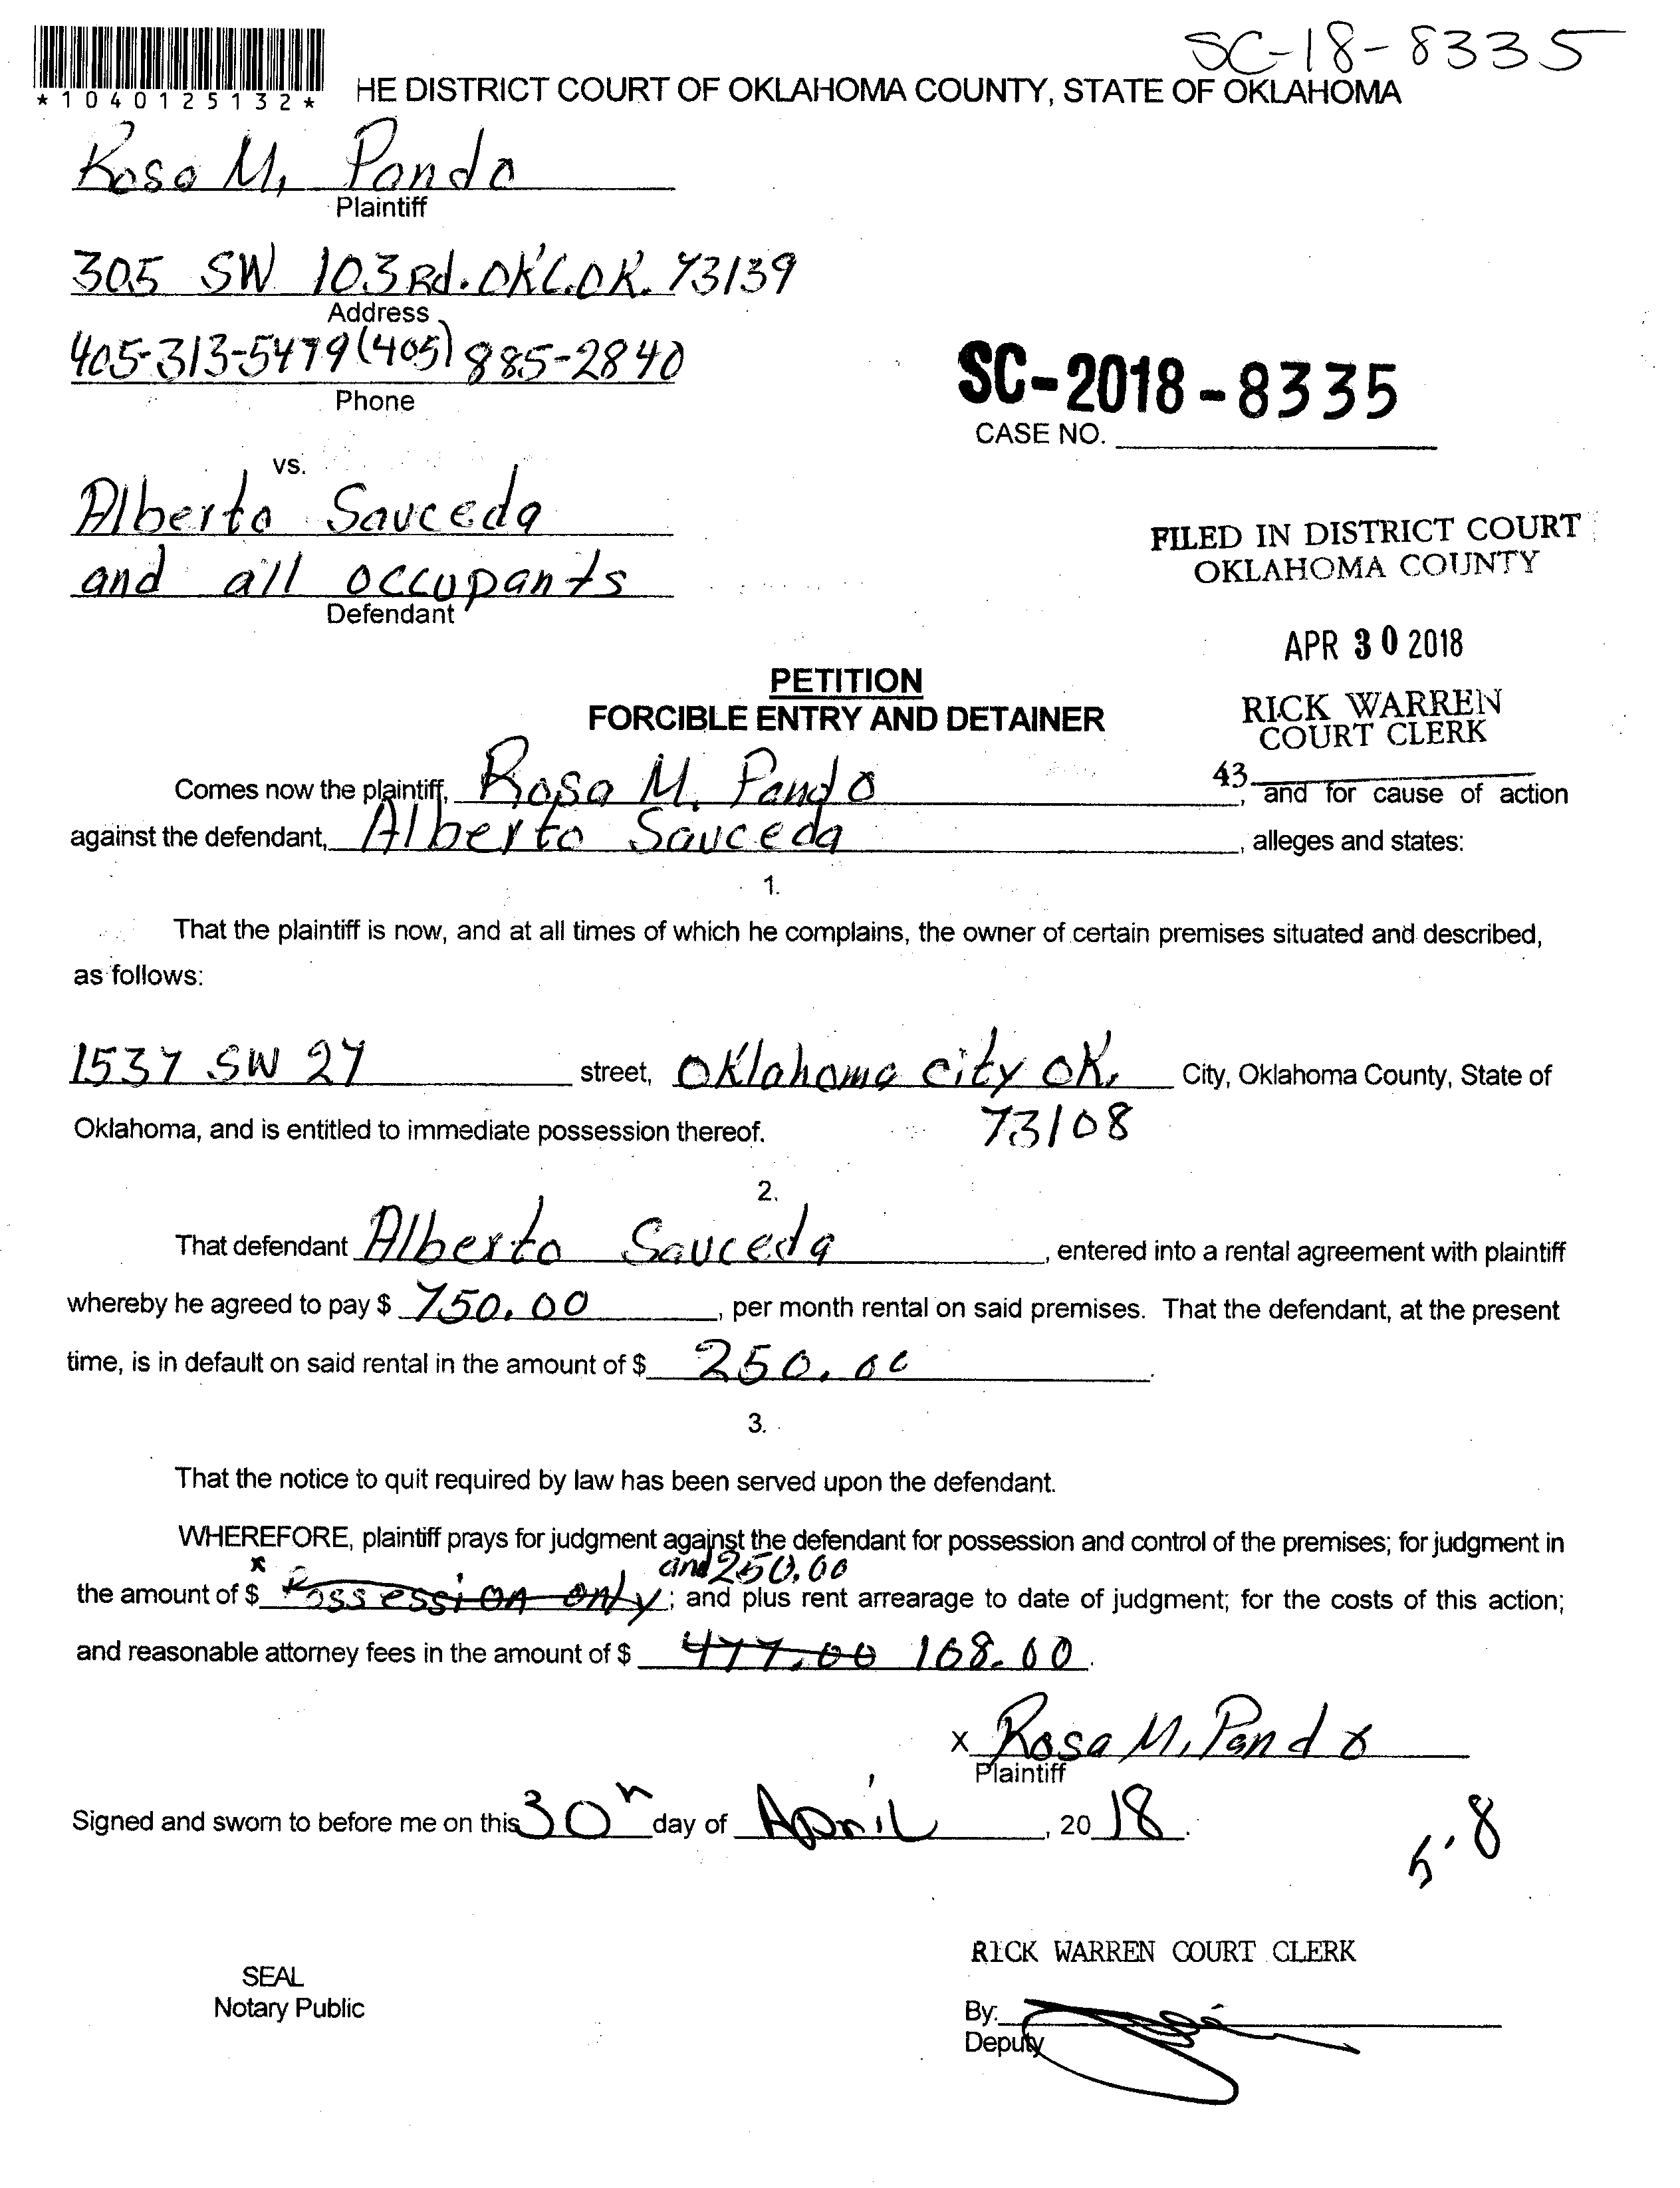 SC-18-8335
*1040125132*
HE DISTRICT COURT OF OKLAHOMA COUNTY, STATE OF OKLAHOMA
Rosa M. Pando
Plaintiff
305 SW 103 Rd. OKC.OK. 73139
Address
405-313-5479 (405) 885-2840
Phone
SC-2018-8335
CASE NO.
vs.
Alberto Sauceda
and all occupants
Defendant
FILED IN DISTRICT COURT
OKLAHOMA COUNTY
APR 30 2018
RICK WARREN
COURT CLERK
43
PETITION
FORCIBLE ENTRY AND DETAINER
Comes now the plaintiff, Rosa M. Pando, and for cause of action
against the defendant, Alberto Sauceda, alleges and states:
1.
That the plaintiff is now, and at all times of which he complains, the owner of certain premises situated and described,
as follows:
1537 SW 27 street, Oklahoma city OK. City, Oklahoma County, State of
73108
Oklahoma, and is entitled to immediate possession thereof.
2.
That defendant Alberto Sauceda, entered into a rental agreement with plaintiff
whereby he agreed to pay $ 750.00, per month rental on said premises. That the defendant, at the present
time, is in default on said rental in the amount of $ 250.00.
3.
That the notice to quit required by law has been served upon the defendant.
WHEREFORE, plaintiff prays for judgment against the defendant for possession and control of the premises; for judgment in
x and 250.00
the amount of $ Possession only; and plus rent arrearage to date of judgment; for the costs of this action;
and reasonable attorney fees in the amount of $ 477.00 168.00.
x Rosa M. Pando
Plaintiff
Signed and sworn to before me on this 30th day of April, 20 18.
5.8
RICK WARREN COURT CLERK
SEAL
Notary Public
By:
Deputy